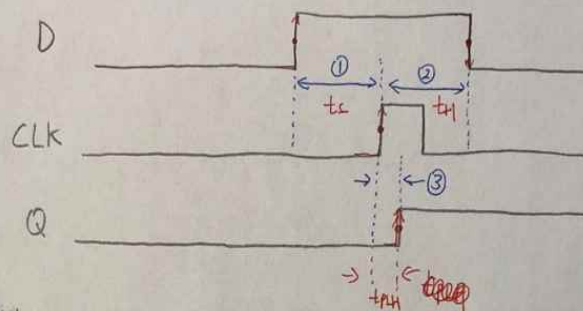 D
① ②
ts tH
CLK
③
Q
tPLH